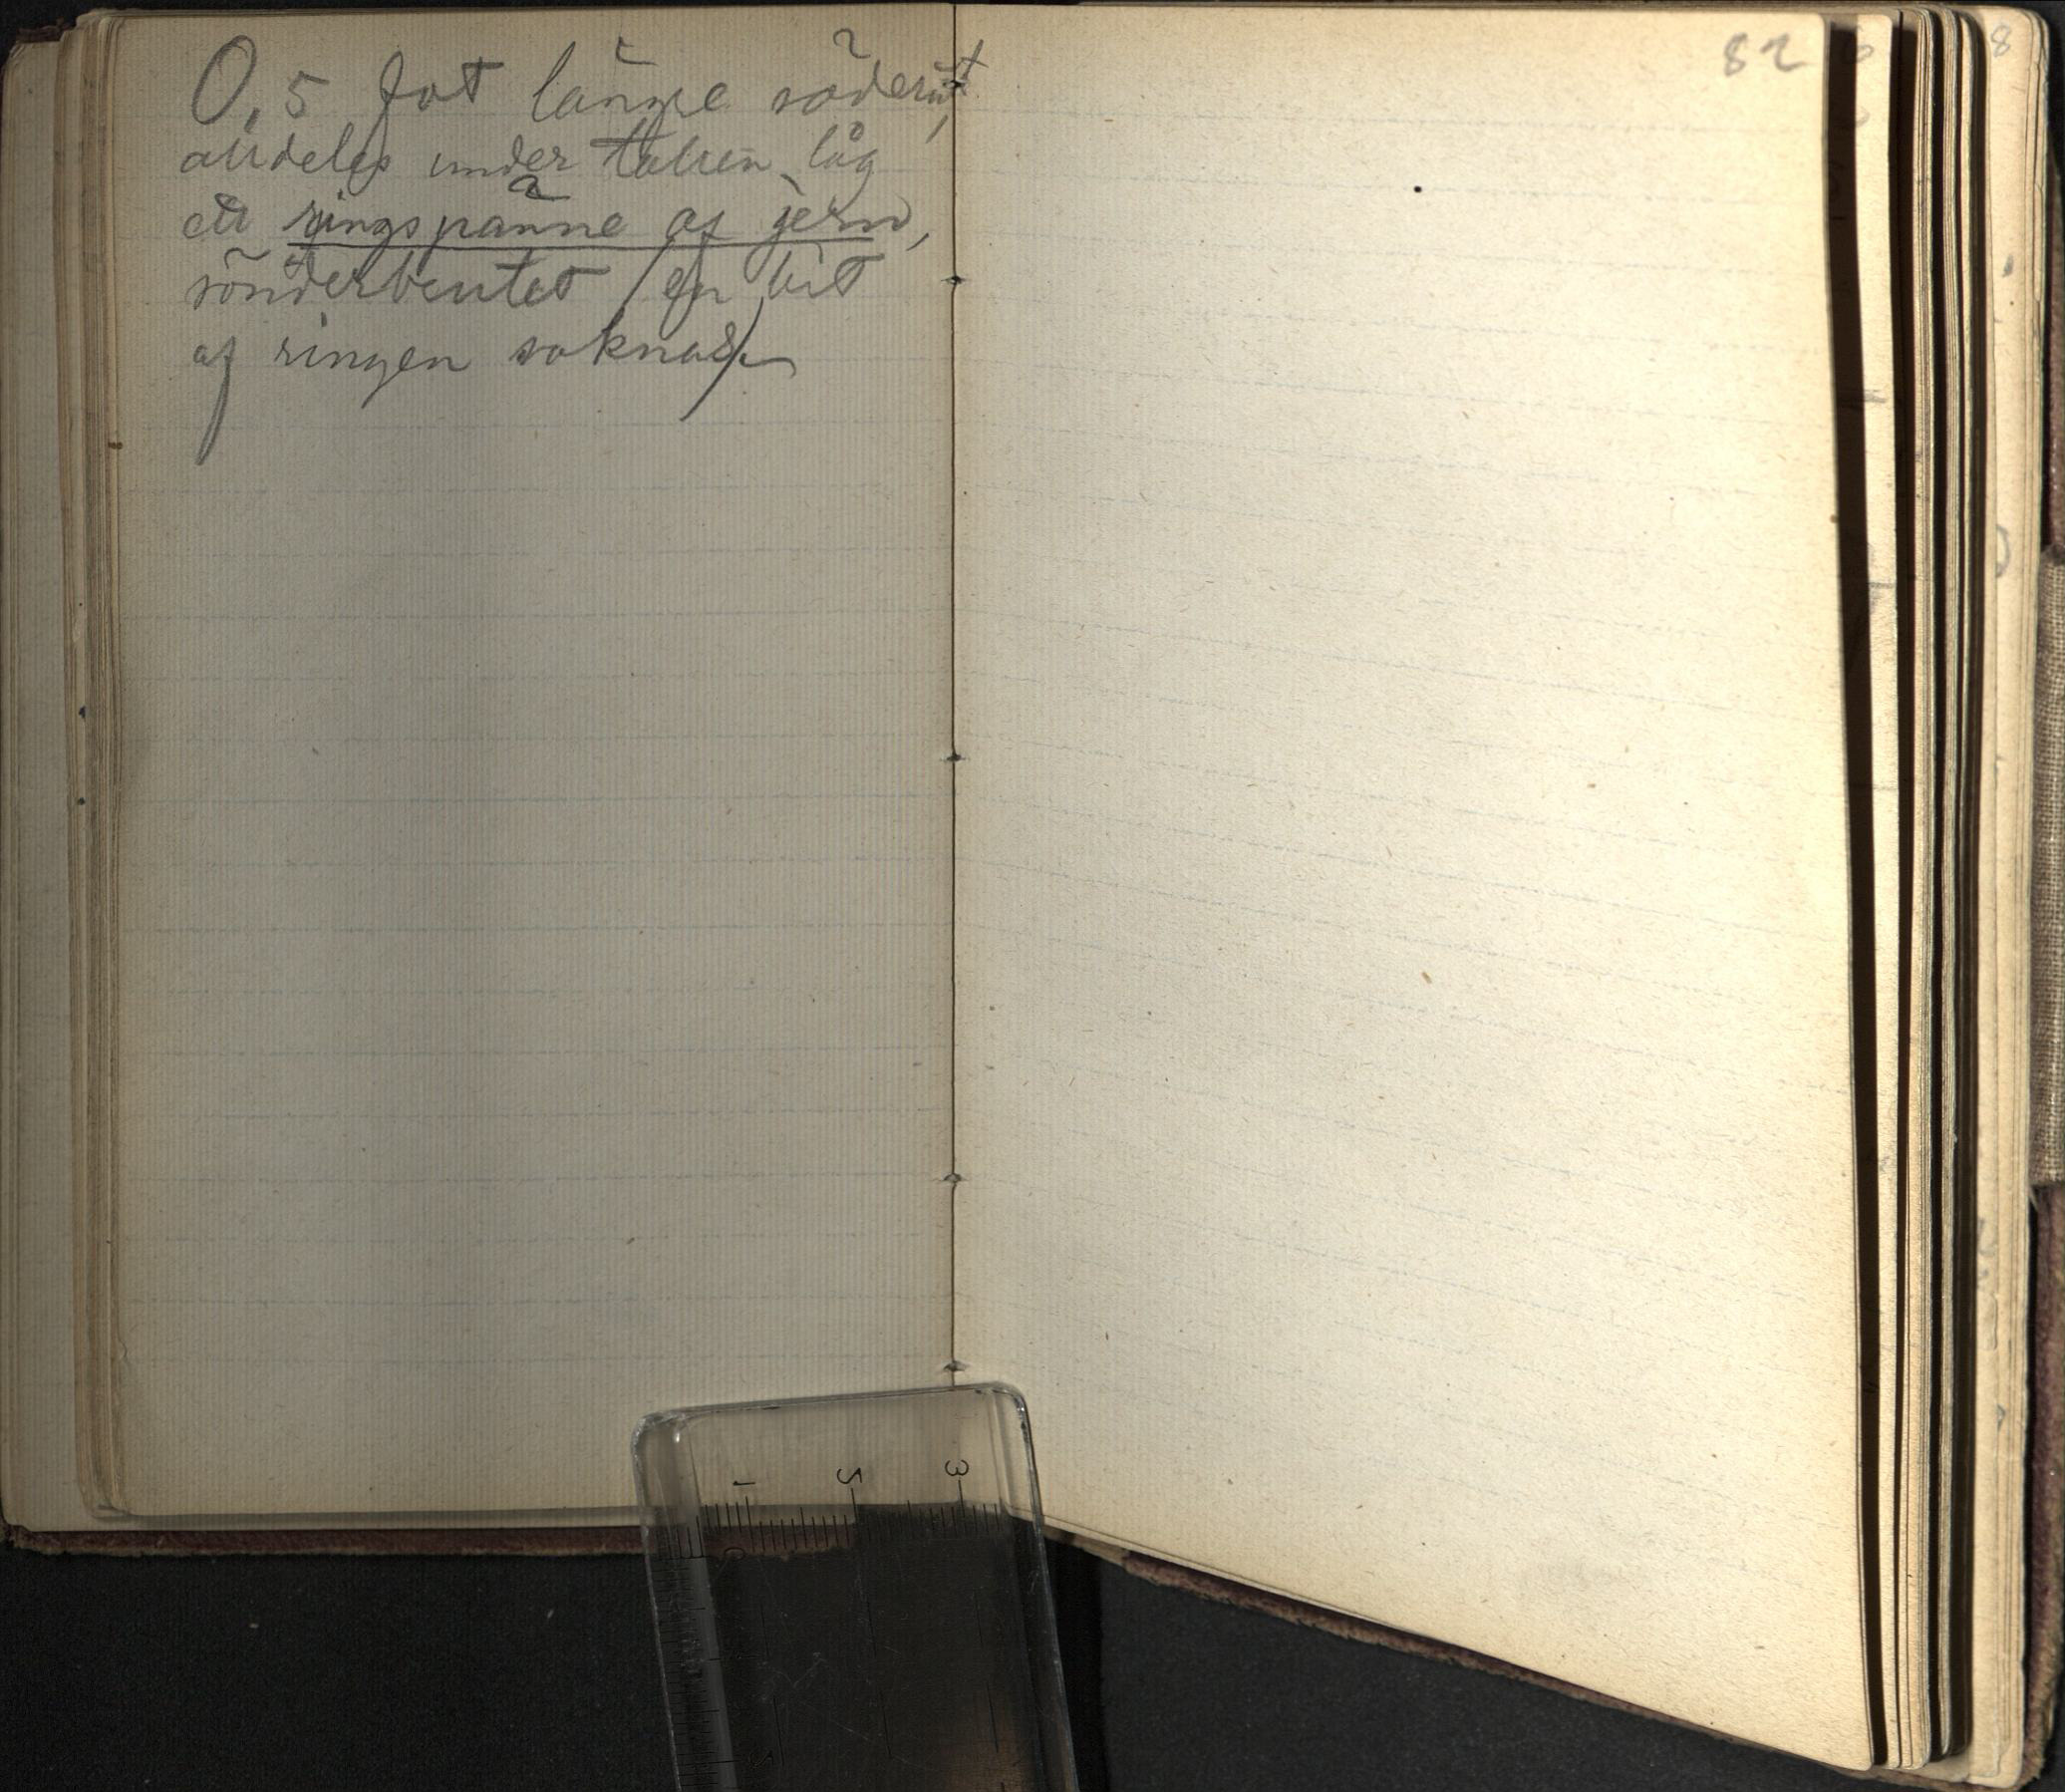 0,5 fot länge söderut,
alldeles under tallen låg
ett ringspänne af jern,
sönderbrutet (en bit
af ringen saknas).
82
8
1
2
3